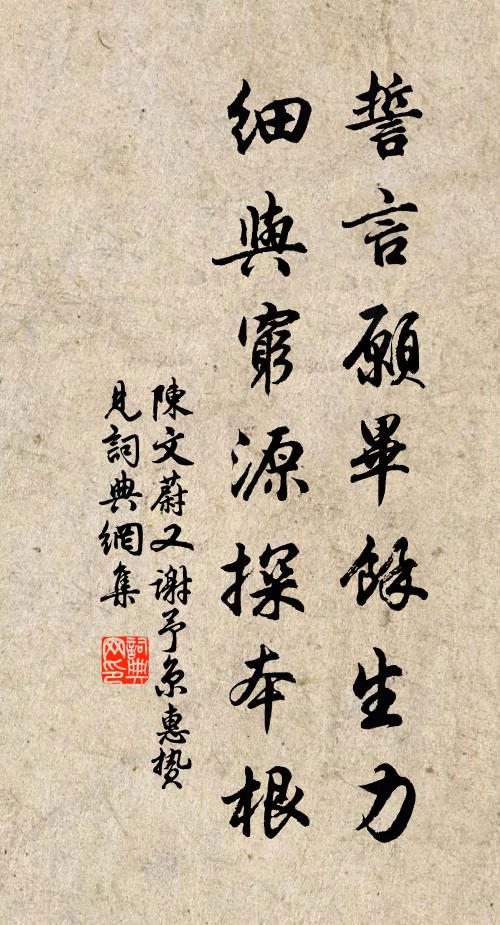 誓言願畢餘生力
細與窮源探本根
陳文蔚又謝予京惠贄
見詞典網集
詞典
网印